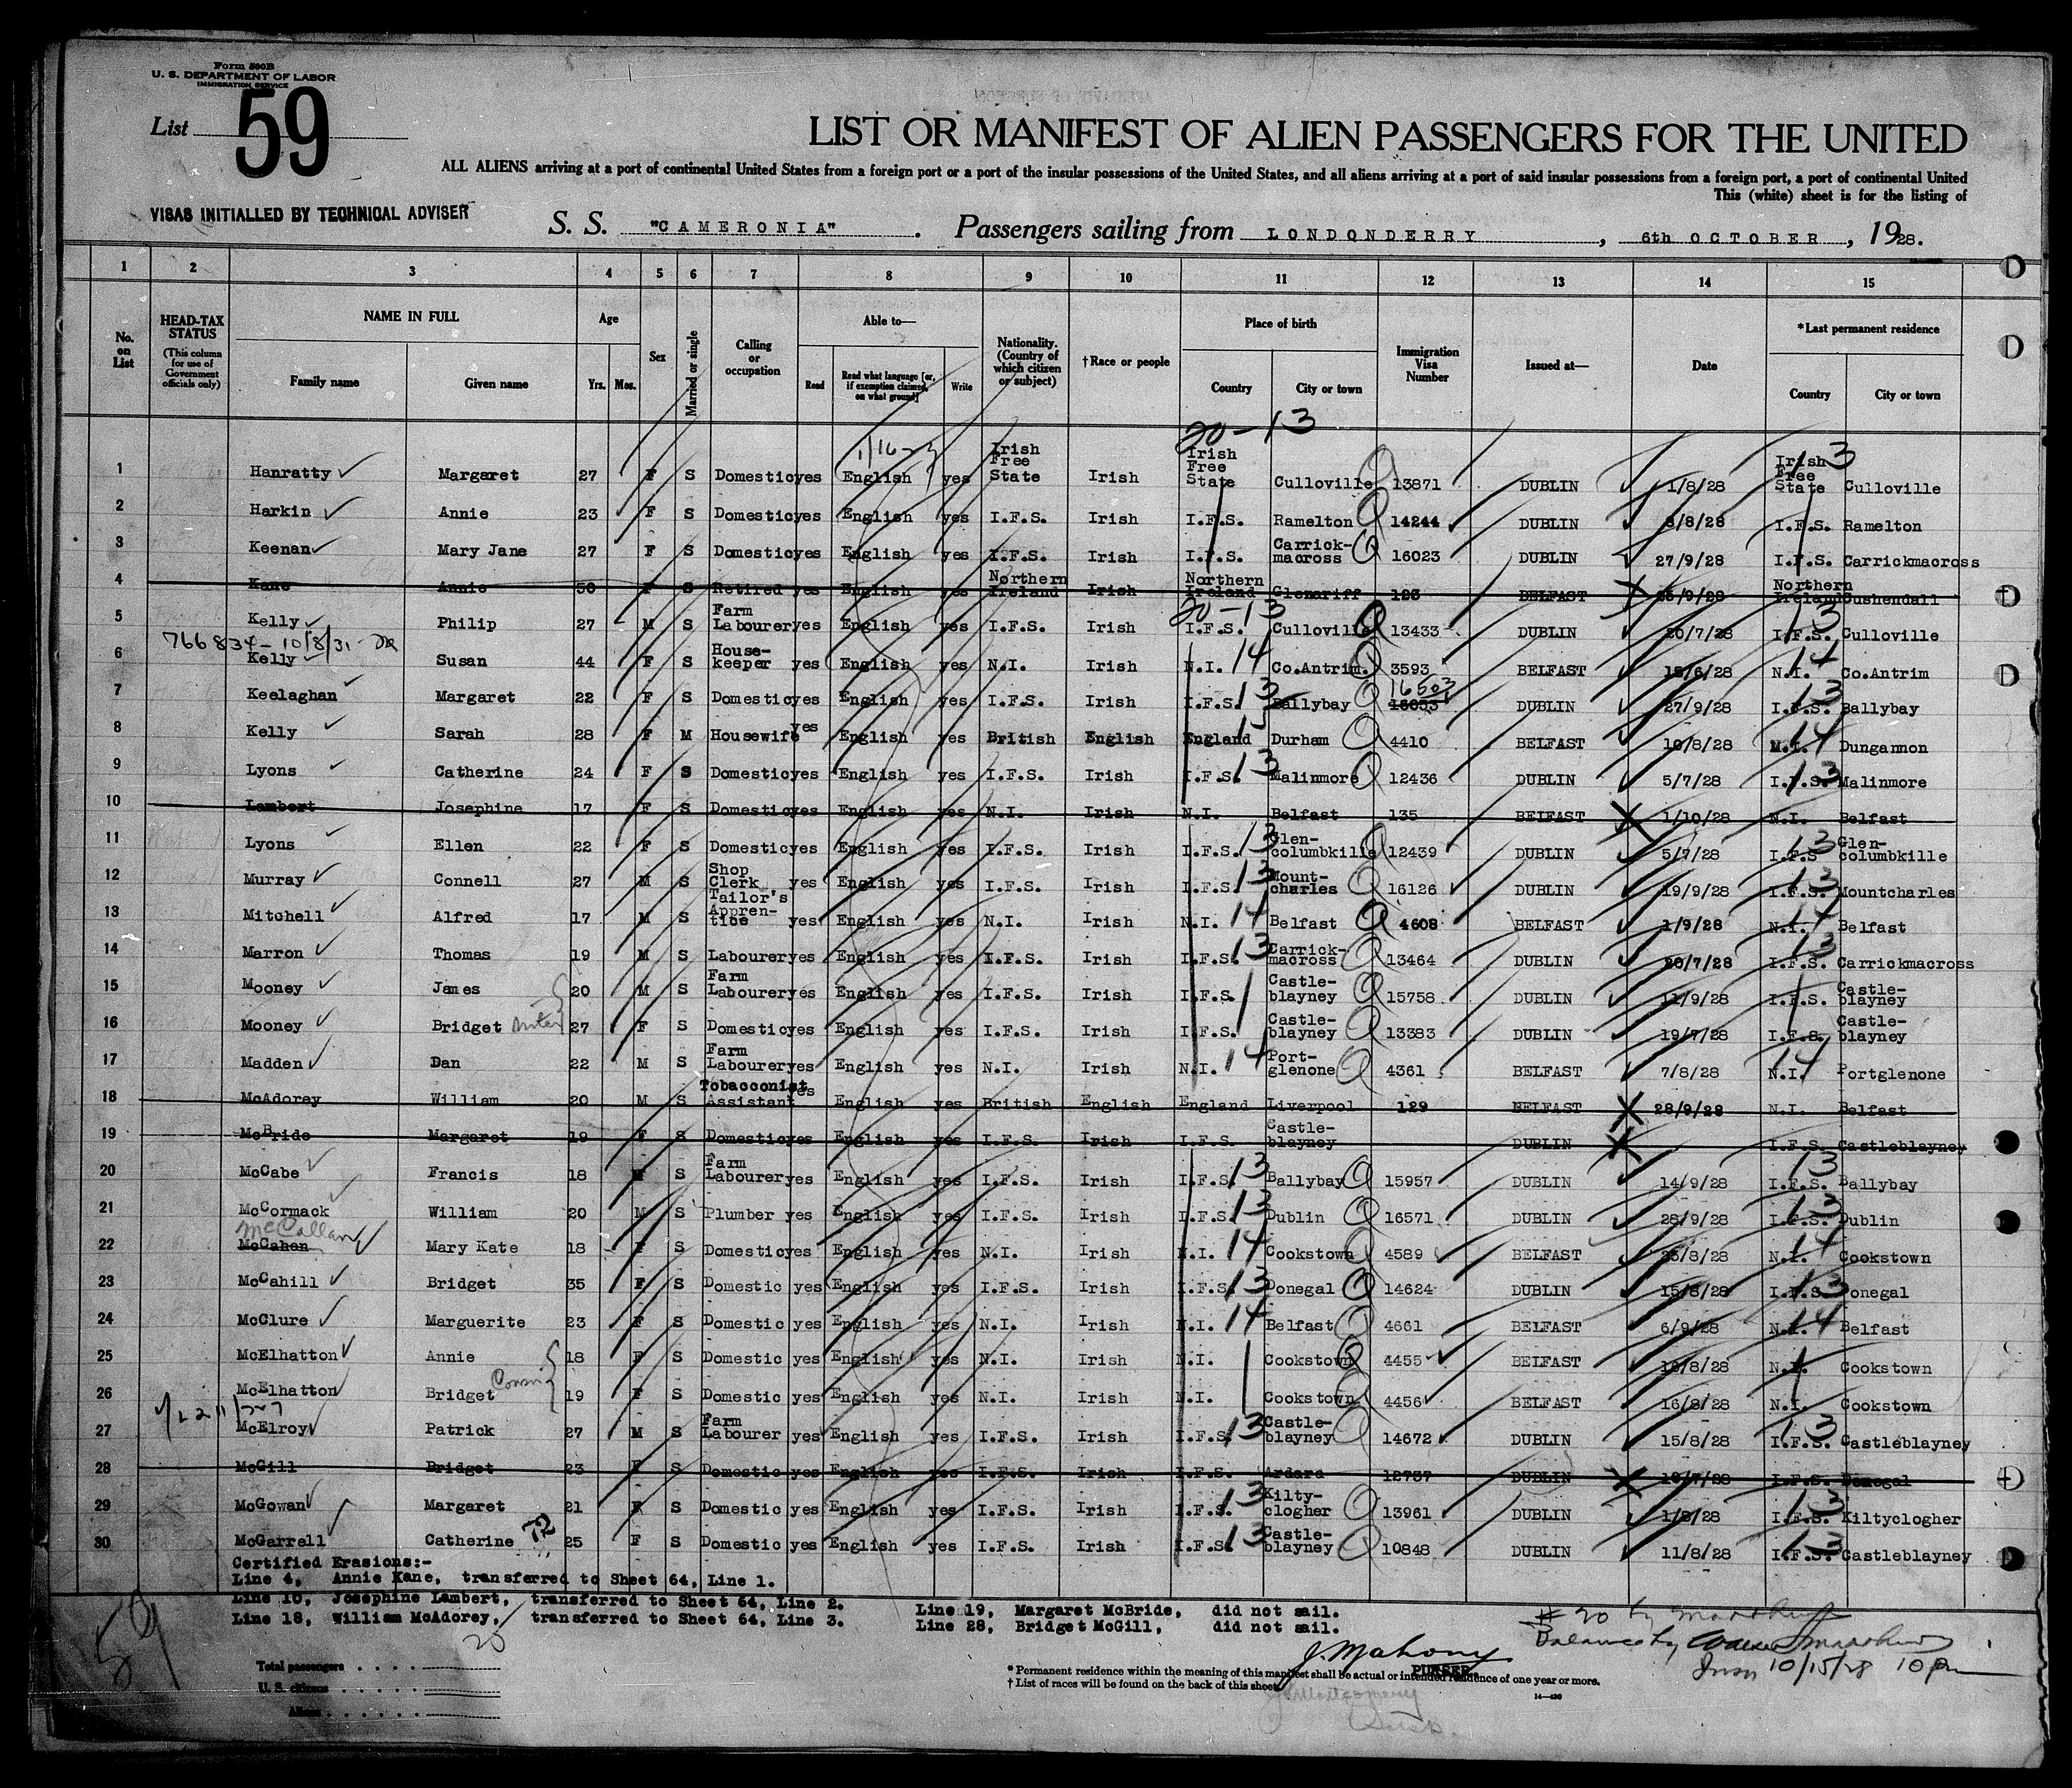 Form 500B
U. S. DEPARTMENT OF LABOR
IMMIGRATION SERVICE
List 59
LIST OR MANIFEST OF ALIEN PASSENGERS FOR THE UNITED
ALL ALIENS arriving at a port of continental United States from a foreign port or a port of the insular possessions of the United States, and all aliens arriving at a port of said insular possessions from a foreign port, a port of continental United
This (white) sheet is for the listing of
VISAS INITIALLED BY TECHNICAL ADVISER
S. S. "CAMERONIA". Passengers sailing from LONDONDERRY, 6th OCTOBER, 1928.
1 2 3 4 5 6 7 8 9 10 11 12 13 14 15
No. on List
HEAD-TAX STATUS (This column for use of Government officials only)
NAME IN FULL Family name Given name
Age Yrs. Mos.
Sex
Married or single
Calling or occupation
Able to— Read Read what language [or, if exemption claimed, on what ground] Write
Nationality. (Country of which citizen or subject)
†Race or people
Place of birth Country City or town
Immigration Visa Number
Issued at—
Date
*Last permanent residence Country City or town
20-13
1 Hanratty Margaret 27 F S Domestic yes English yes Irish Free State Irish Irish Free State Culloville 13871 DUBLIN 1/8/28 Irish Free State Culloville
2 Harkin Annie 23 F S Domestic yes English yes I.F.S. Irish I.F.S. Ramelton 14244 DUBLIN 8/8/28 I.F.S. Ramelton
3 Keenan Mary Jane 27 F S Domestic yes English yes I.F.S. Irish I.F.S. Carrick-macross 16023 DUBLIN 27/9/28 I.F.S. Carrickmacross
4 Kane Annie 50 F S Retired yes English yes Northern Ireland Irish Northern Ireland Glenariff 123 BELFAST 25/9/28 Northern Ireland Cushendall
5 Kelly Philip 27 M S Farm Labourer yes English yes I.F.S. Irish 20-13 I.F.S. Culloville 13433 DUBLIN 20/7/28 I.F.S. 13 Culloville
766834 - 10/8/31
6 Kelly Susan 44 F S House-keeper yes English yes N.I. Irish N.I. 14 Co.Antrim. 3593 BELFAST 15/6/28 N.I. 14 Co.Antrim
7 Keelaghan Margaret 22 F S Domestic yes English yes I.F.S. Irish I.F.S. 13 Ballybay 16503 DUBLIN 27/9/28 I.F.S. 13 Ballybay
8 Kelly Sarah 28 F M Housewife yes English yes British English England Durham 4410 BELFAST 10/8/28 N.I. 14 Dungannon
9 Lyons Catherine 24 F S Domestic yes English yes I.F.S. Irish I.F.S. 13 Malinmore 12436 DUBLIN 5/7/28 I.F.S. 13 Malinmore
10 Lambert Josephine 17 F S Domestic yes English yes N.I. Irish N.I. Belfast 135 BELFAST 1/10/28 N.I. Belfast
11 Lyons Ellen 22 F S Domestic yes English yes I.F.S. Irish I.F.S. 13 Glen-columbkille 12439 DUBLIN 5/7/28 I.F.S 13 Glen-columbkille
12 Murray Connell 27 M S Shop Clerk yes English yes I.F.S. Irish I.F.S. 13 Mount-charles 16126 DUBLIN 19/9/28 I.F.S. 13 Mountcharles
13 Mitchell Alfred 17 M S Tailor's Appren-tice yes English yes N.I. Irish N.I. 14 Belfast 4608 BELFAST 1/9/28 N.I. 14 Belfast
14 Marron Thomas 19 M S Labourer yes English yes I.F.S. Irish I.F.S. 13 Carrick-macross 13464 DUBLIN 20/7/28 I.F.S. 13 Carrickmacross
15 Mooney James 20 M S Farm Labourer yes English yes I.F.S. Irish I.F.S. Castle-blayney 15758 DUBLIN 11/9/28 I.F.S. Castle-blayney
16 Mooney Bridget sister 27 F S Domestic yes English yes I.F.S. Irish I.F.S. Castle-blayney 13383 DUBLIN 19/7/28 I.F.S. Castle-blayney
17 Madden Dan 22 M S Farm Labourer yes English yes N.I. Irish N.I. 14 Port-glenone 4361 BELFAST 7/8/28 N.I. 14 Portglenone
18 McAdorey William 20 M S Tobacconist Assistant yes English yes British English England Liverpool 129 BELFAST 28/9/28 N.I. Belfast
19 McBride Margaret 19 F S Domestic yes English yes I.F.S. Irish I.F.S. Castle-blayney DUBLIN I.F.S. Castleblayney
20 McCabe Francis 18 M S Farm Labourer yes English yes I.F.S. Irish I.F.S. 13 Ballybay 15957 DUBLIN 14/9/28 I.F.S. 13 Ballybay
21 McCormack William 20 M S Plumber yes English yes I.F.S. Irish I.F.S. 13 Dublin 16571 DUBLIN 28/9/28 I.F.S. 13 Dublin
McCallan
22 McCahen Mary Kate 18 F S Domestic yes English yes N.I. Irish N.I. 14 Cookstown 4589 BELFAST 25/8/28 N.I. 14 Cookstown
23 McCahill Bridget 35 F S Domestic yes English yes I.F.S. Irish I.F.S. 13 Donegal 14624 DUBLIN 15/8/28 I.F.S. 13 Donegal
24 McClure Marguerite 23 F S Domestic yes English yes N.I. Irish N.I. 14 Belfast 4661 BELFAST 6/9/28 N.I. 14 Belfast
25 McElhatton Annie 18 F S Domestic yes English yes N.I. Irish N.I. Cookstown 4455 BELFAST 16/8/28 N.I. Cookstown
26 McElhatton Bridget Cousin 19 F S Domestic yes English yes N.I. Irish N.I. Cookstown 4456 BELFAST 16/8/28 N.I. Cookstown
27 McElroy Patrick 27 M S Farm Labourer yes English yes I.F.S. Irish I.F.S. 13 Castle-blayney 14672 DUBLIN 15/8/28 I.F.S. 13 Castleblayney
28 McGill Bridget 23 F S Domestic yes English yes I.F.S. Irish I.F.S. Ardara 12737 DUBLIN 10/7/28 I.F.S. Donegal
29 McGowan Margaret 21 F S Domestic yes English yes I.F.S. Irish I.F.S. 13 Kilty-clogher 13961 DUBLIN 1/8/28 I.F.S. 13 Kiltyclogher
30 McGarrell Catherine 25 F S Domestic yes English yes I.F.S. Irish I.F.S. 13 Castle-blayney 10848 DUBLIN 11/8/28 I.F.S. 13 Castleblayney
Certified Erasions:-
Line 4, Annie Kane, transferred to Sheet 64, Line 1.
Line 10, Josephine Lambert, transferred to Sheet 64, Line 2. Line 19, Margaret McBride, did not sail.
Line 18, William McAdorey, transferred to Sheet 64, Line 3. Line 28, Bridget McGill, did not sail.
59
25
J. Mahony
PURSER.
10/15/28 10 pm
Total passengers
U. S. citizens
Aliens
* Permanent residence within the meaning of this manifest shall be actual or intended residence of one year or more.
† List of races will be found on the back of this sheet.
14—430